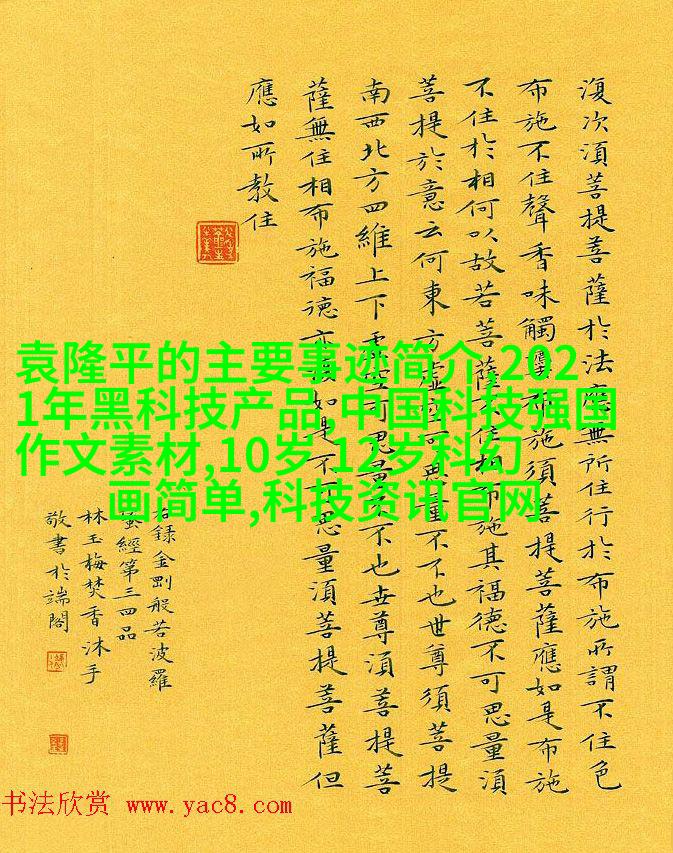 復次湏菩提菩薩於法應無所住行於布施所謂不住色
布施不住聲香味觸法布施須菩提菩薩應如是布施
不住於相何以故若菩薩不住相布施其福德不可思量湏
菩提於意云何東方虛空可思量不不也世尊須菩提
南西北方四維上下虛空可思量不不也世尊湏菩提菩
薩無住相布施福德亦復如是不可思量湏菩提菩薩但
應如所教住
右録金剛般若波羅
蜜經第三四品
林玉梅焚香沐手
敬書於端閣
袁隆平的主要事迹简介,202
1年黑科技产品,中国科技强国
作文素材,10岁-12岁科幻
画简单,科技资讯官网
书法欣赏 www.yac8.com